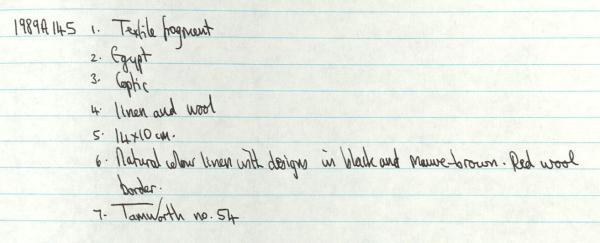 1989A145 1. Textile fragment
2. Egypt
3. Coptic
4. linen and wool
5. 14x10 cm.
6. Natural colour linen with designs in black and mauve-brown. Red wool
border.
7. Tamworth no. 54